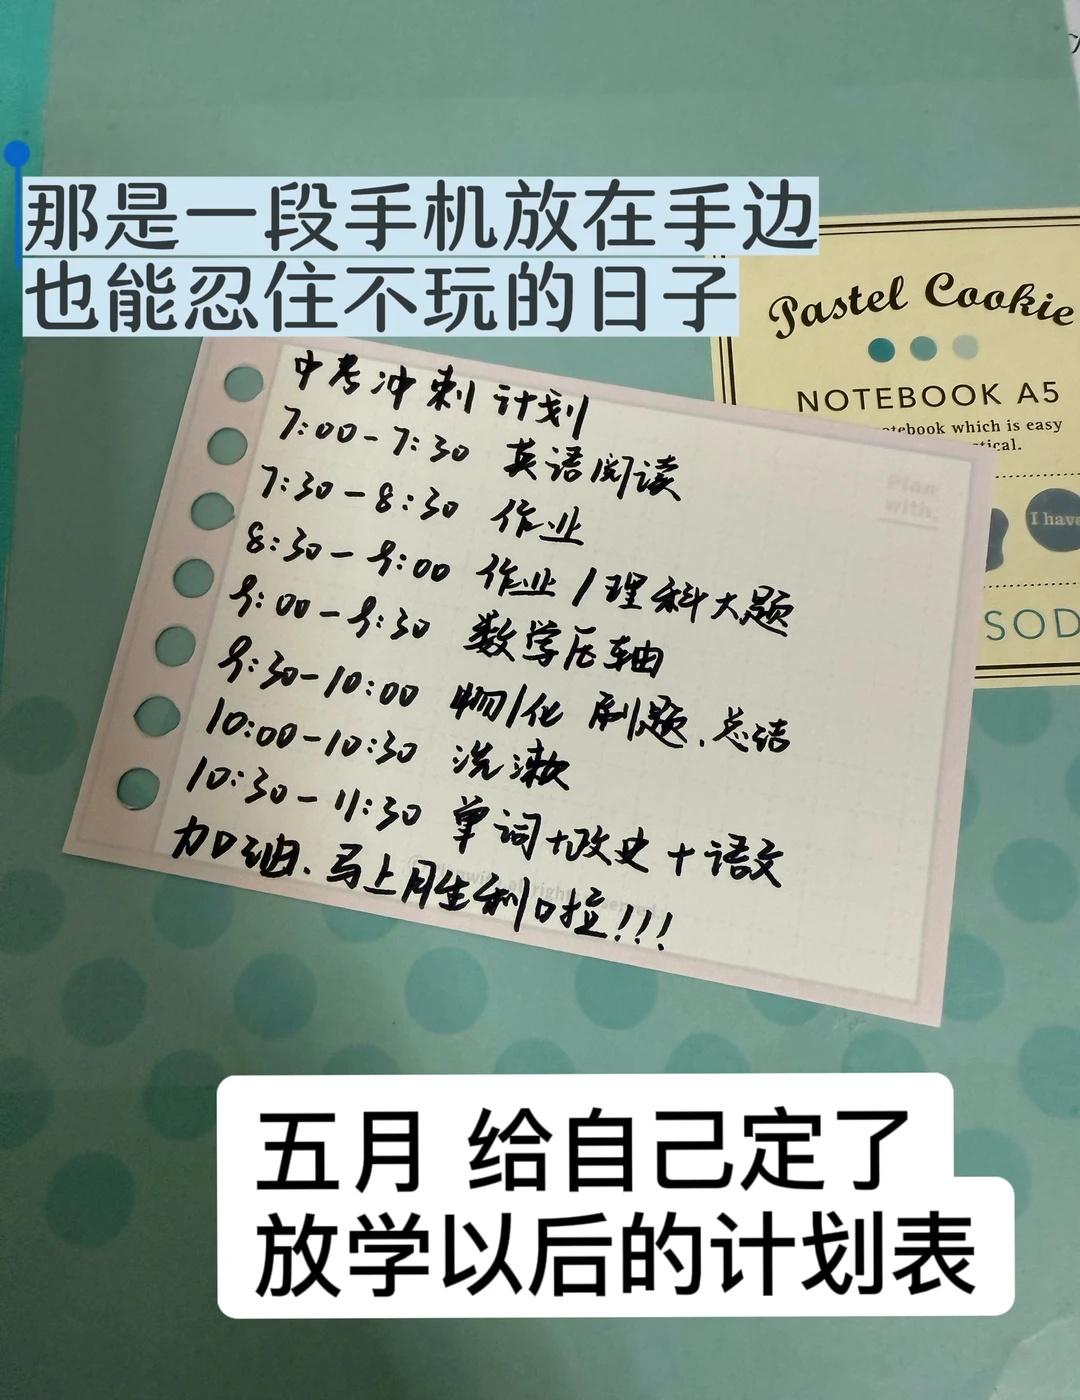 那是一段手机放在手边
也能忍住不玩的日子
Pastel Cookie
NOTEBOOK A5
notebook which is easy
tical.
I have
SOD
Plan
with.
中考冲刺计划
7:00-7:30 英语阅读
7:30-8:30 作业
8:30-9:00 作业/理科大题
9:00-9:30 数学压轴
9:30-10:00 物/化 刷题、总结
10:00-10:30 洗漱
10:30-11:30 单词+政史+语文
加油、马上胜利啦!!!
五月 给自己定了
放学以后的计划表